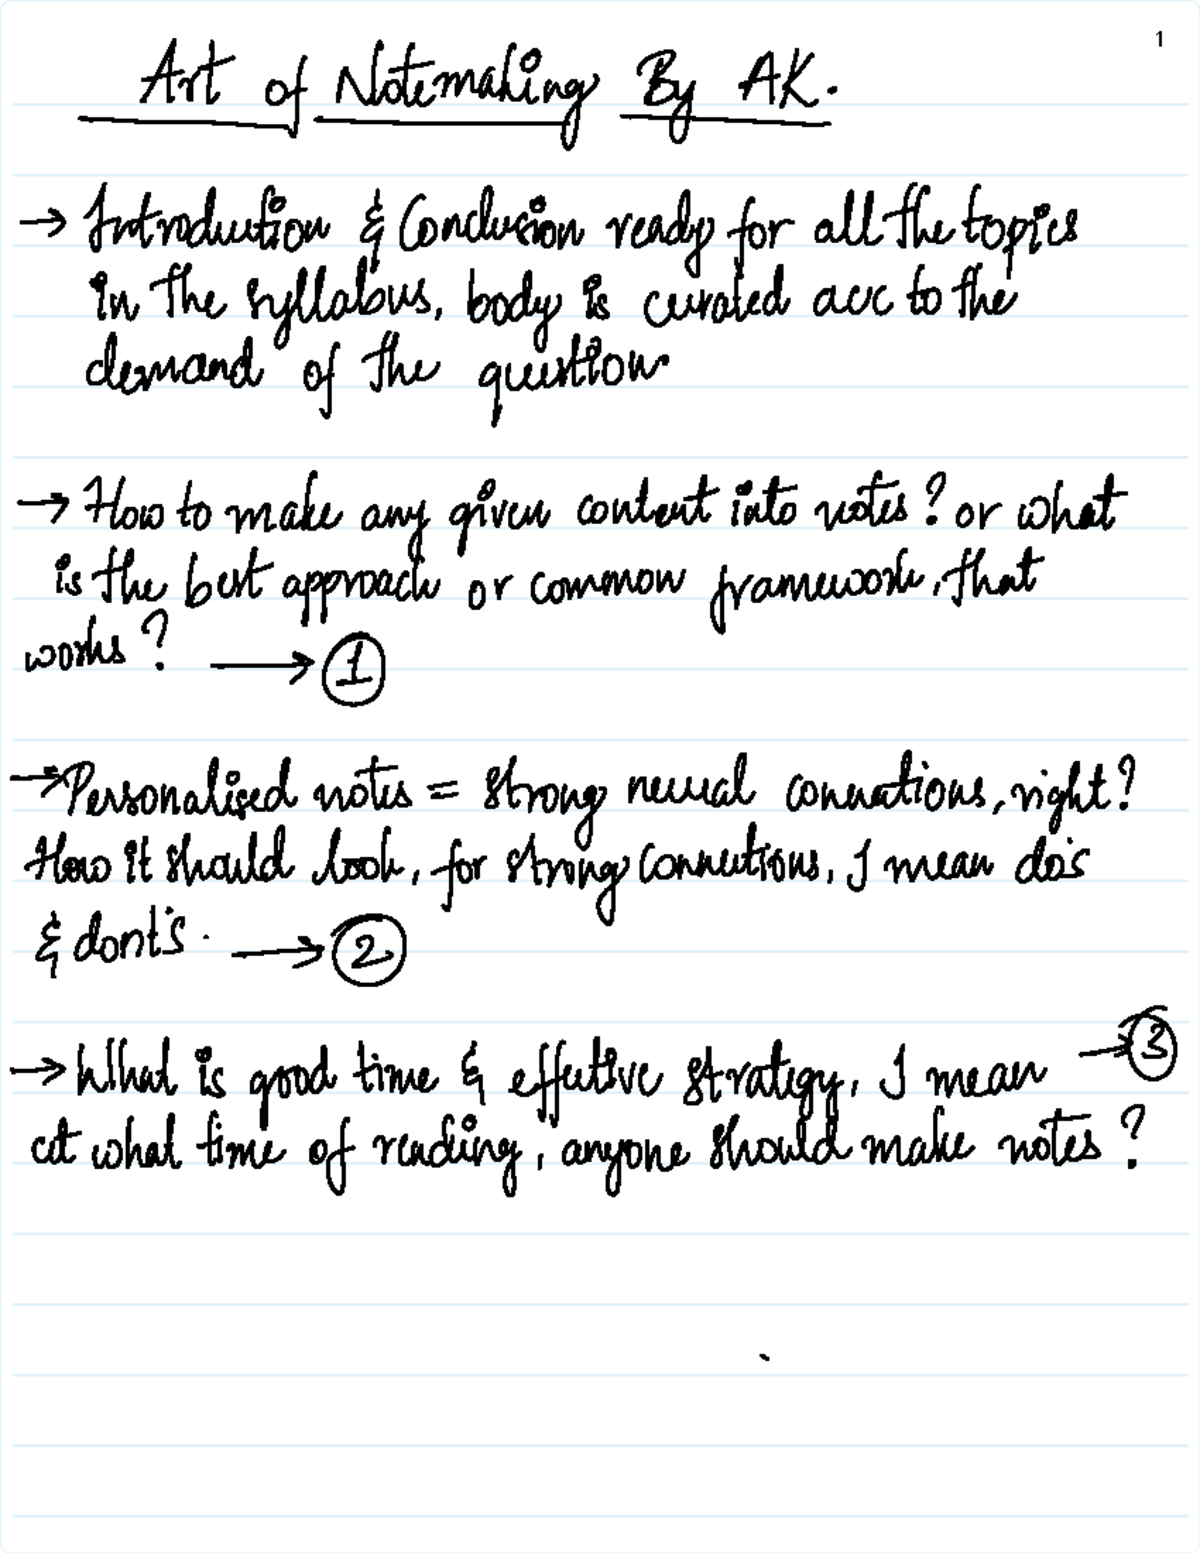 1
Art of Notemaking By AK.
→ Introduction & Conclusion ready for all the topics
in the syllabus, body is curated acc to the
demand of the question.
→ How to make any given content into notes? or what
is the best approach or common framework, that
works? → 1
→ Personalised notes = strong neural connections, right?
How it should look, for strong connections, I mean do's
& dont's. → 2
→ What is good time & effective strategy, I mean → 3
at what time of reading, anyone should make notes?